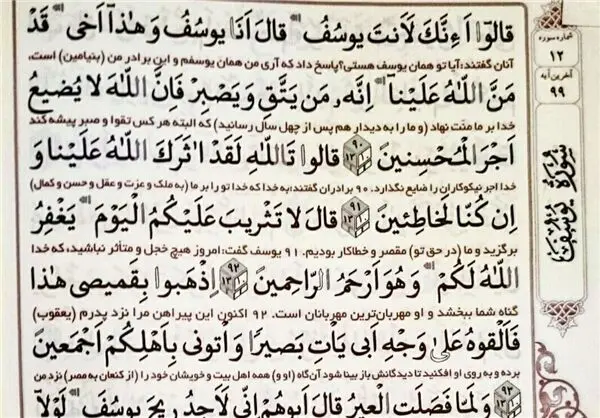 قالُوٓا أَءِنَّكَ لَأَنتَ يوسُفُ قالَ أَنَا يوسُفُ وَ هٰذآ أَخی قَدْ
آنان گفتند: آیا تو همان یوسف هستی؟ پاسخ داد که آری من همان یوسفم و این برادر من (بنیامین) است،
مَنَّ اللّٰهُ عَلَيْنآ إِنَّهُ, مَن يَتَّقِ وَ يَصْبِرْ فَإِنَّ اللّٰهَ لا يُضيعُ
خدا بر ما منّت نهاد (و ما را به دیدار هم پس از چهل سال رسانید) که البته هر کس تقوا و صبر پیشه کند
أَجْرَ الْمُحْسِنينَ ٩٠ قالُوا تَاللّٰهِ لَقَدْ اٰثَرَكَ اللّٰهُ عَلَيْنا وَ
خدا اجر نیکوکاران را ضایع نگذارد. ۹۰ برادران گفتند: به خدا که خدا تو را بر ما (به ملک و عزت و عقل و حسن و کمال)
إِن كُنّا لَخاطِئينَ ٩١ قالَ لا تَثْريبَ عَلَيْكُمُ الْيَوْمَ يَغْفِرُ
برگزید و ما (در حق تو) مقصر و خطاکار بودیم. ۹۱ یوسف گفت: امروز هیچ خجل و متأثر نباشید، که خدا
اللّٰهُ لَكُمْ وَ هُوَ أَرْحَمُ الرّاحِمينَ ٩٢ إِذْهَبوا بِقَميصی هٰذا
گناه شما ببخشد و او مهربان‌ترین مهربانان است. ۹۲ اکنون این پیراهن مرا نزد پدرم (یعقوب)
فَأَلْقوهُ عَلىٰ وَجْهِ أَبی يَأْتِ بَصيرًا وَ أْتونی بِأَهْلِكُمْ أَجْمَعينَ
برده و به روی او افکنید تا دیدگانش باز بینا شود آن‌گاه (او و) همه اهل بیت و خویشان خود را (از کنعان به مصر) نزد من
٩٣ وَ لَمّا فَصَلَتِ الْعيرُ قالَ أَبوهُمْ إِنّی لَأَجِدُ ريحَ يوسُفَ لَوْلآ
شماره سوره
۱۲
آخرین آیه
۹۹
سُورَةُ يُوسُفَ